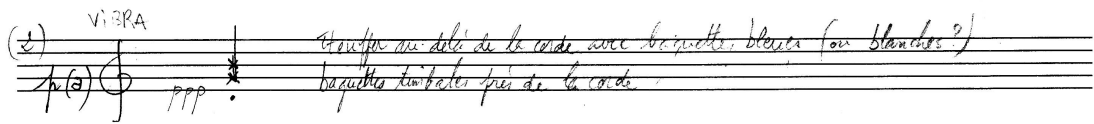 VIBRA
(2) Etouffer au-delà de la corde avec baguettes bleues (ou blanches ?)
p(a) ppp baguettes timbales près de la corde